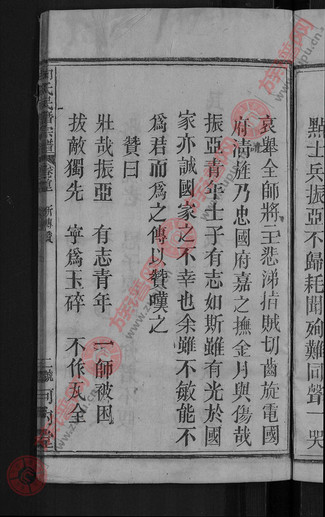 點士兵振亞不歸耗聞殉難同聲一哭
哀舉全師將士悲涕指賊切齒旋電國
府請旌乃忠國府嘉之撫金月與傷哉
振亞青年士子有志如斯雖有光於國
家亦誠國家之不幸也余雖不敏能不
為君而為之傳以贊嘆之
贊曰
壯哉振亞 有志青年 一師被困
拔敵獨先 寧為玉碎 不作瓦全
何氏
宗譜
卷
新傳